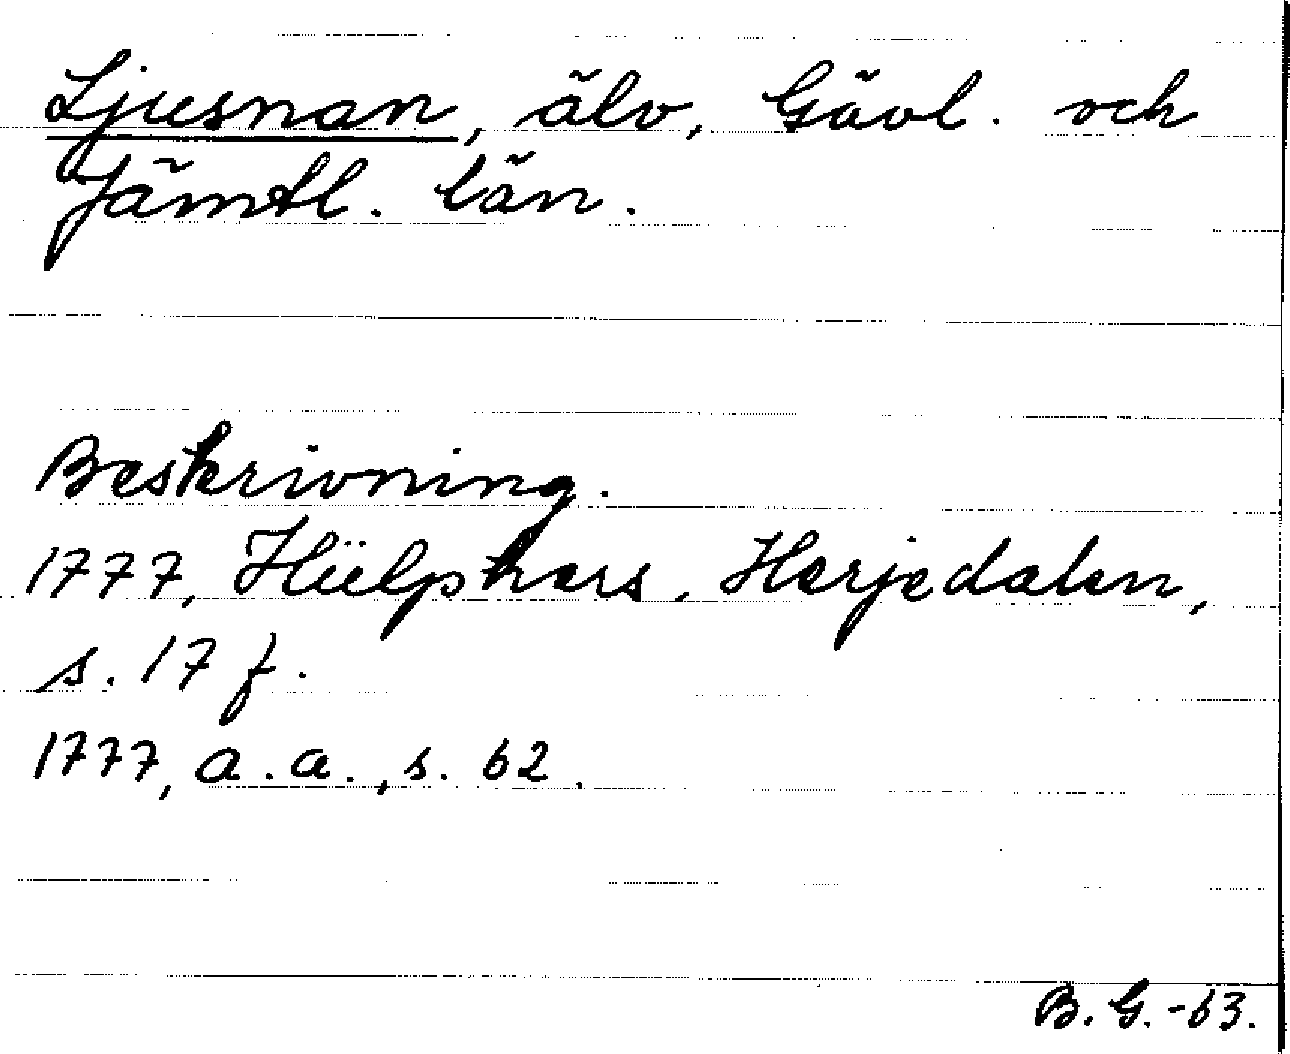 Ljusnan, älv, Gävl. och
Jämtl. län.
Beskrivning.
1777, Hülphers, Herjedalen,
s. 17 f.
1777, a.a., s. 62.
B.G.-63.